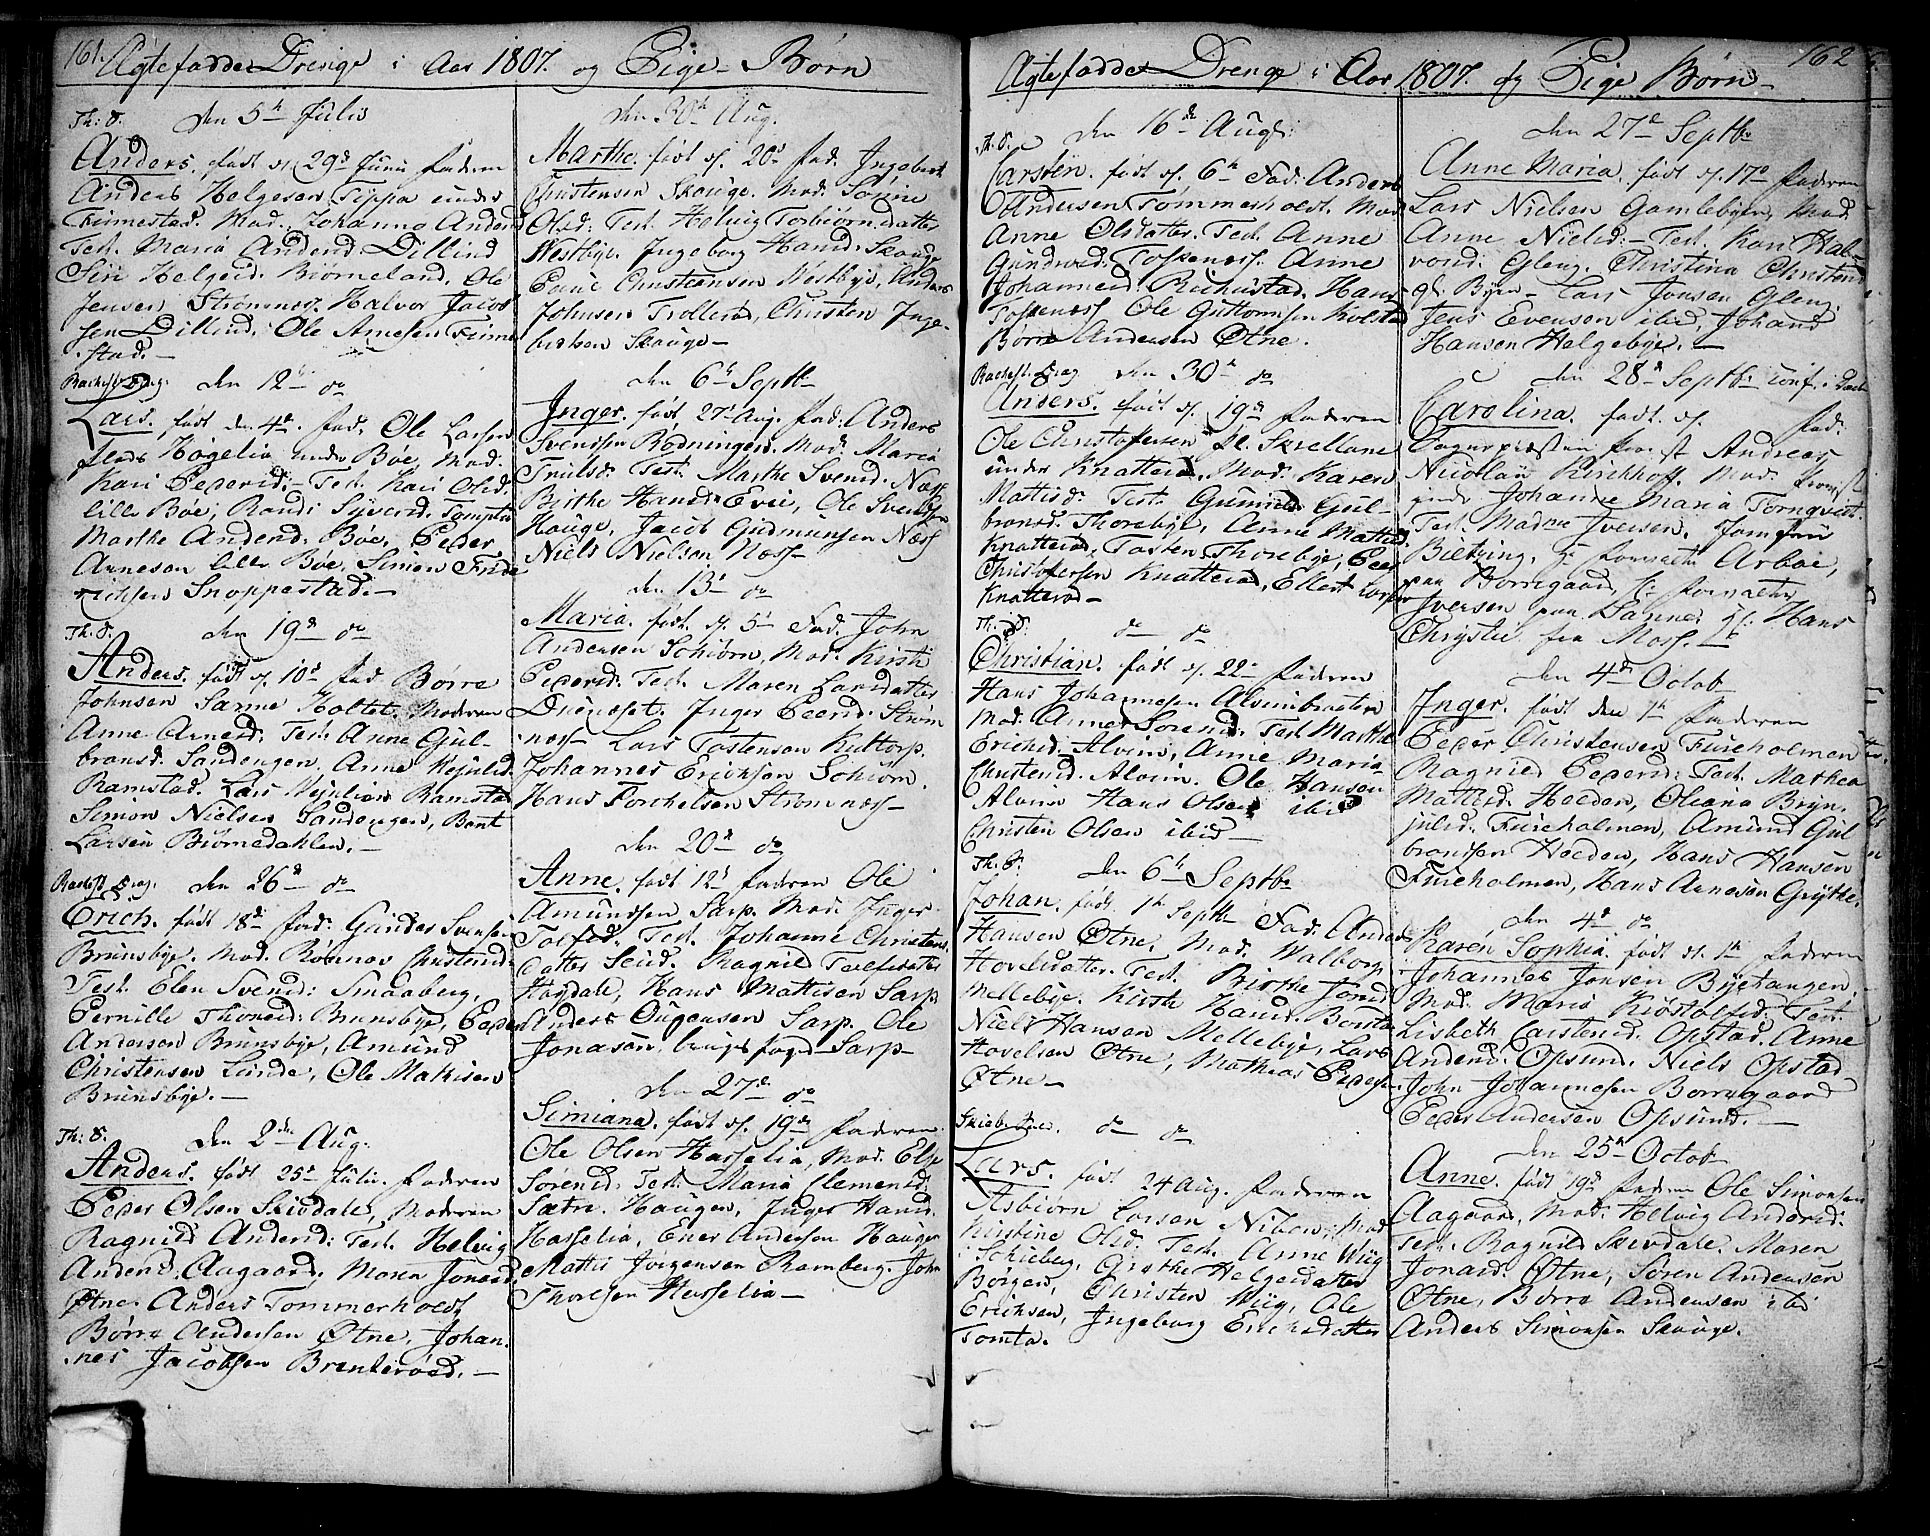 161. Ægtefødde Drenge i Aar 1807. og Pige-Børn
Th: S. Den 5te Julii
Anders. født d. 29d Junii Faderen
Anders Helgesen Tippa under
Finnestad. Mod. Johanna Andersd
Test. Maria Andersd: Dillind
Siri Helgesd: Biørneland, Ole
Jensen Strømnes, Halvor Jacob
sen Dillind, Ole Arnesen Finne
stad.-
Rachest. Sog: den 12te do
Lars. født den 4de. Fad. Ole Larsen
Plads Høgelia under Bøe, Mod.
Kari Pedersd:- Test. Kari Olsd
lille Bøe, Randi Syversd. Tompter
Marthe Andersd: Bøe, Peder
Arnesen lille Bøe, Simon Fride
richsen Snoppestad.-
Th: S. den 19d do
Anders. født d. 10d Fad Børre
Johnsen Sanne Holtet. Moderen
Anne Arnesd: Test. Anne Gul-
bransd. Sandengen. Anne Kejulsd.
Ramstad. Lars Kejulsen Ramstad
Simon Nielsen Sandengen, Bent
Larsen Biørnedahlen.-
Rachest Sog. den 26d do
Erich. født 18d Fad: Gunder Svensen
Brunsbye. Mod. Rønnov Christensd:
Test. Elen Svensd: Smaaberg,
Pernille Thoresd: Brunsbye, Peder
Andersen Brunsbye, Amund
Christensen Lunde, Ole Mathisen
Brunsbye.-
Th: S. Den 2den Aug.
Anders. født 25d Julii. Faderen
Peder Olsen Skivdale, Moderen
Ragnild Andersd: Test. Helvig
Andersd. Aagaard. Maren Jonasd.
Øtne. Anders Tommerholdt
Børre Andersen Øtne, Johan-
nes Jacobsen Brenterød.-
Den 30te Aug.
Marthe. født d. 20d Fad. Ingebret
Christensen Skouge. Mod. Sorine
Olsd: Test. Helvig Torbiørnsdatter
Westbye. Ingeborg Hansd: Skouge
Poul Christensen Westbye, Anders
Johnsen Trollerød, Christen Inge-
bretsen Skouge-
den 6te Septb
Inger. født 27d Aug. Fad. Anders
Svendsen Rødninger. Mod. Maria
Truilsd. Test. Marthe Svensd. Næss
Birthe Hansd: Evie, Ole Svensen
Houge, Jacob Gudmunsen Næss
Niels Nielsen Næss-
den 13d do
Maria. født d. 5d Fad. John
Andersen Schiørn, Mod. Kirsti
Pedersd. Test. Maren Larsdatter
Duenæset. Inger Peersd: Strøm
næss- Lars Tostensen Kultorp.
Johannes Erichsen Schiørn.
Hans Torchelsen Strømnæss-
den 20d do
Anne. født 12d Faderen Ole
Amundsen Sarp. Mod. Inger
Tolfsd: Test. Johanne Christens
datter Seiid. Ragnil Tolfsdatter
Hagdale, Hans Mattisen Sarp
Anders Ougensen Sarp. Ole
Jonasen Sarp-
den 27d do
Simiana. født d. 19d Faderen
Ole Olsen Hasselia, Mod. Else
Sørensd: Test. Maria Clemensd:
Sætre. Haugen, Inger Hansd.
Hasselia, Ener Andersen Haugen
Mattis Jørgensen Ramberg. John
Thoresen Hasselia-
Ægtefødde Drenge i Aar 1807. og Pige Børn- 162
Th. S. den 16de Aug:
Carsten. født d. 6te Fad: Anders
Andersen Tømmerholdt. Mod
Anne Olsdatter. Test. Anne
Gundersd: Toskenæss. Anne
Johannesd: Richustad. Hans
Toskenæss Ole Guttormsen Kolstad
Børre Andersen Øtne.
Rachest. Sog den 30te do
Anders. født d. 19d Faderen
Ole Christophersen Pl. Skrellane
under Knatterød. Mod. Karen
Mattisd: Test. Gunnild Gul-
bransd. Thorebye, Anne Mattisd.
Knatterød, Tosten Thorebye, Peer
Christophersen Knatterød, Ellert
Knatterød-
Th: S: do do
Christian. født d. 22d Faderen
Hans Johannesen Alvimbraaten
Mod. Anne Sørensd: Test. Marthe
Erichsd. Alvim, Anne Maria
Christensd. Alvim. Ole Hansen
Alvim Hans Olsen ibid
Christen Olsen ibid-
Th. S: den 6te Septb
Johan. født 1te Septb Fad. Anders
Hansen Øtne. Mod. Walborg
Hovelsdatter. Test. Birthe Jonsd
Mellebye. Kirsth Hansd.
Niels Hansen Mellebye, Lars
Hovelsen Øtne, Mathias Pedersen
Øtne-
Skieberg: do do
Lars. født 24 Aug. Faderen
Asbiørn Larsen Niboe, Mod
Kirstine Olsd: Test. Anne Wiig
Schieberg, Grethe Helgesdatter
Borgen, Christen Wiig, Ole
Eriksen, Ingeborg Erichsdatter
Tomta.
den 27d Septb
Anne Maria. født d. 17d Faderen
Lars Nielsen Gamlebyen, Mod.
Anne Nielsd:- Test. Kari Hal-
vorsd: Gleng. Christina Christensd
gl. Byen- Lars Jonsen Gleng.
Jens Evensen ibid, Johans
Hansen Helgebye.-
den 28d Septb. conf. i
Carolina. født. d. Fad:
Sognepræsten for Andreas
Nicolay Kirckhoff. Mod.
Johanne Maria Tornqvist.
Test. Madme Iversen. Jomfru
Bietzing, Hr Arboe,
paa Borregaard, Hr.
Iversen paa Sanne, gl. Hans
Chrystie fra Moss.
den 4de Octob
Inger. født den 1te Faderen
Peder Christensen Fureholmen
Ragnild Pedersd: Test. Mathea
Mattisd. Heeden, Oliana Bryn
julsd. Fureholmen, Amund Gul
bransen Heeden, Hans Hansen
Fureholmen, Hans Arnesen Grytte.
den 4d do
Karen Sophia. født d. 1te Faderen
Johannes Jonsen Byetangen,
Mod. Maria Kiøstolfsd: Test.
Lisbeth Carstensd. Opstad. Anne
Andersd. Opsund. Niels Opstad
John Johannesen Borregaard
Peder Andersen Opsund.-
den 25d Octob
Anne. født 19d Faderen Ole Simonsen
Aagaard, Mod: Helvig Andersd:
Test. Ragnild Skivdale. Maren
Jonasd. Øtne, Søren Andersen
Øtne, Børre Andersen ibid
Anders Simonsen Skouge.